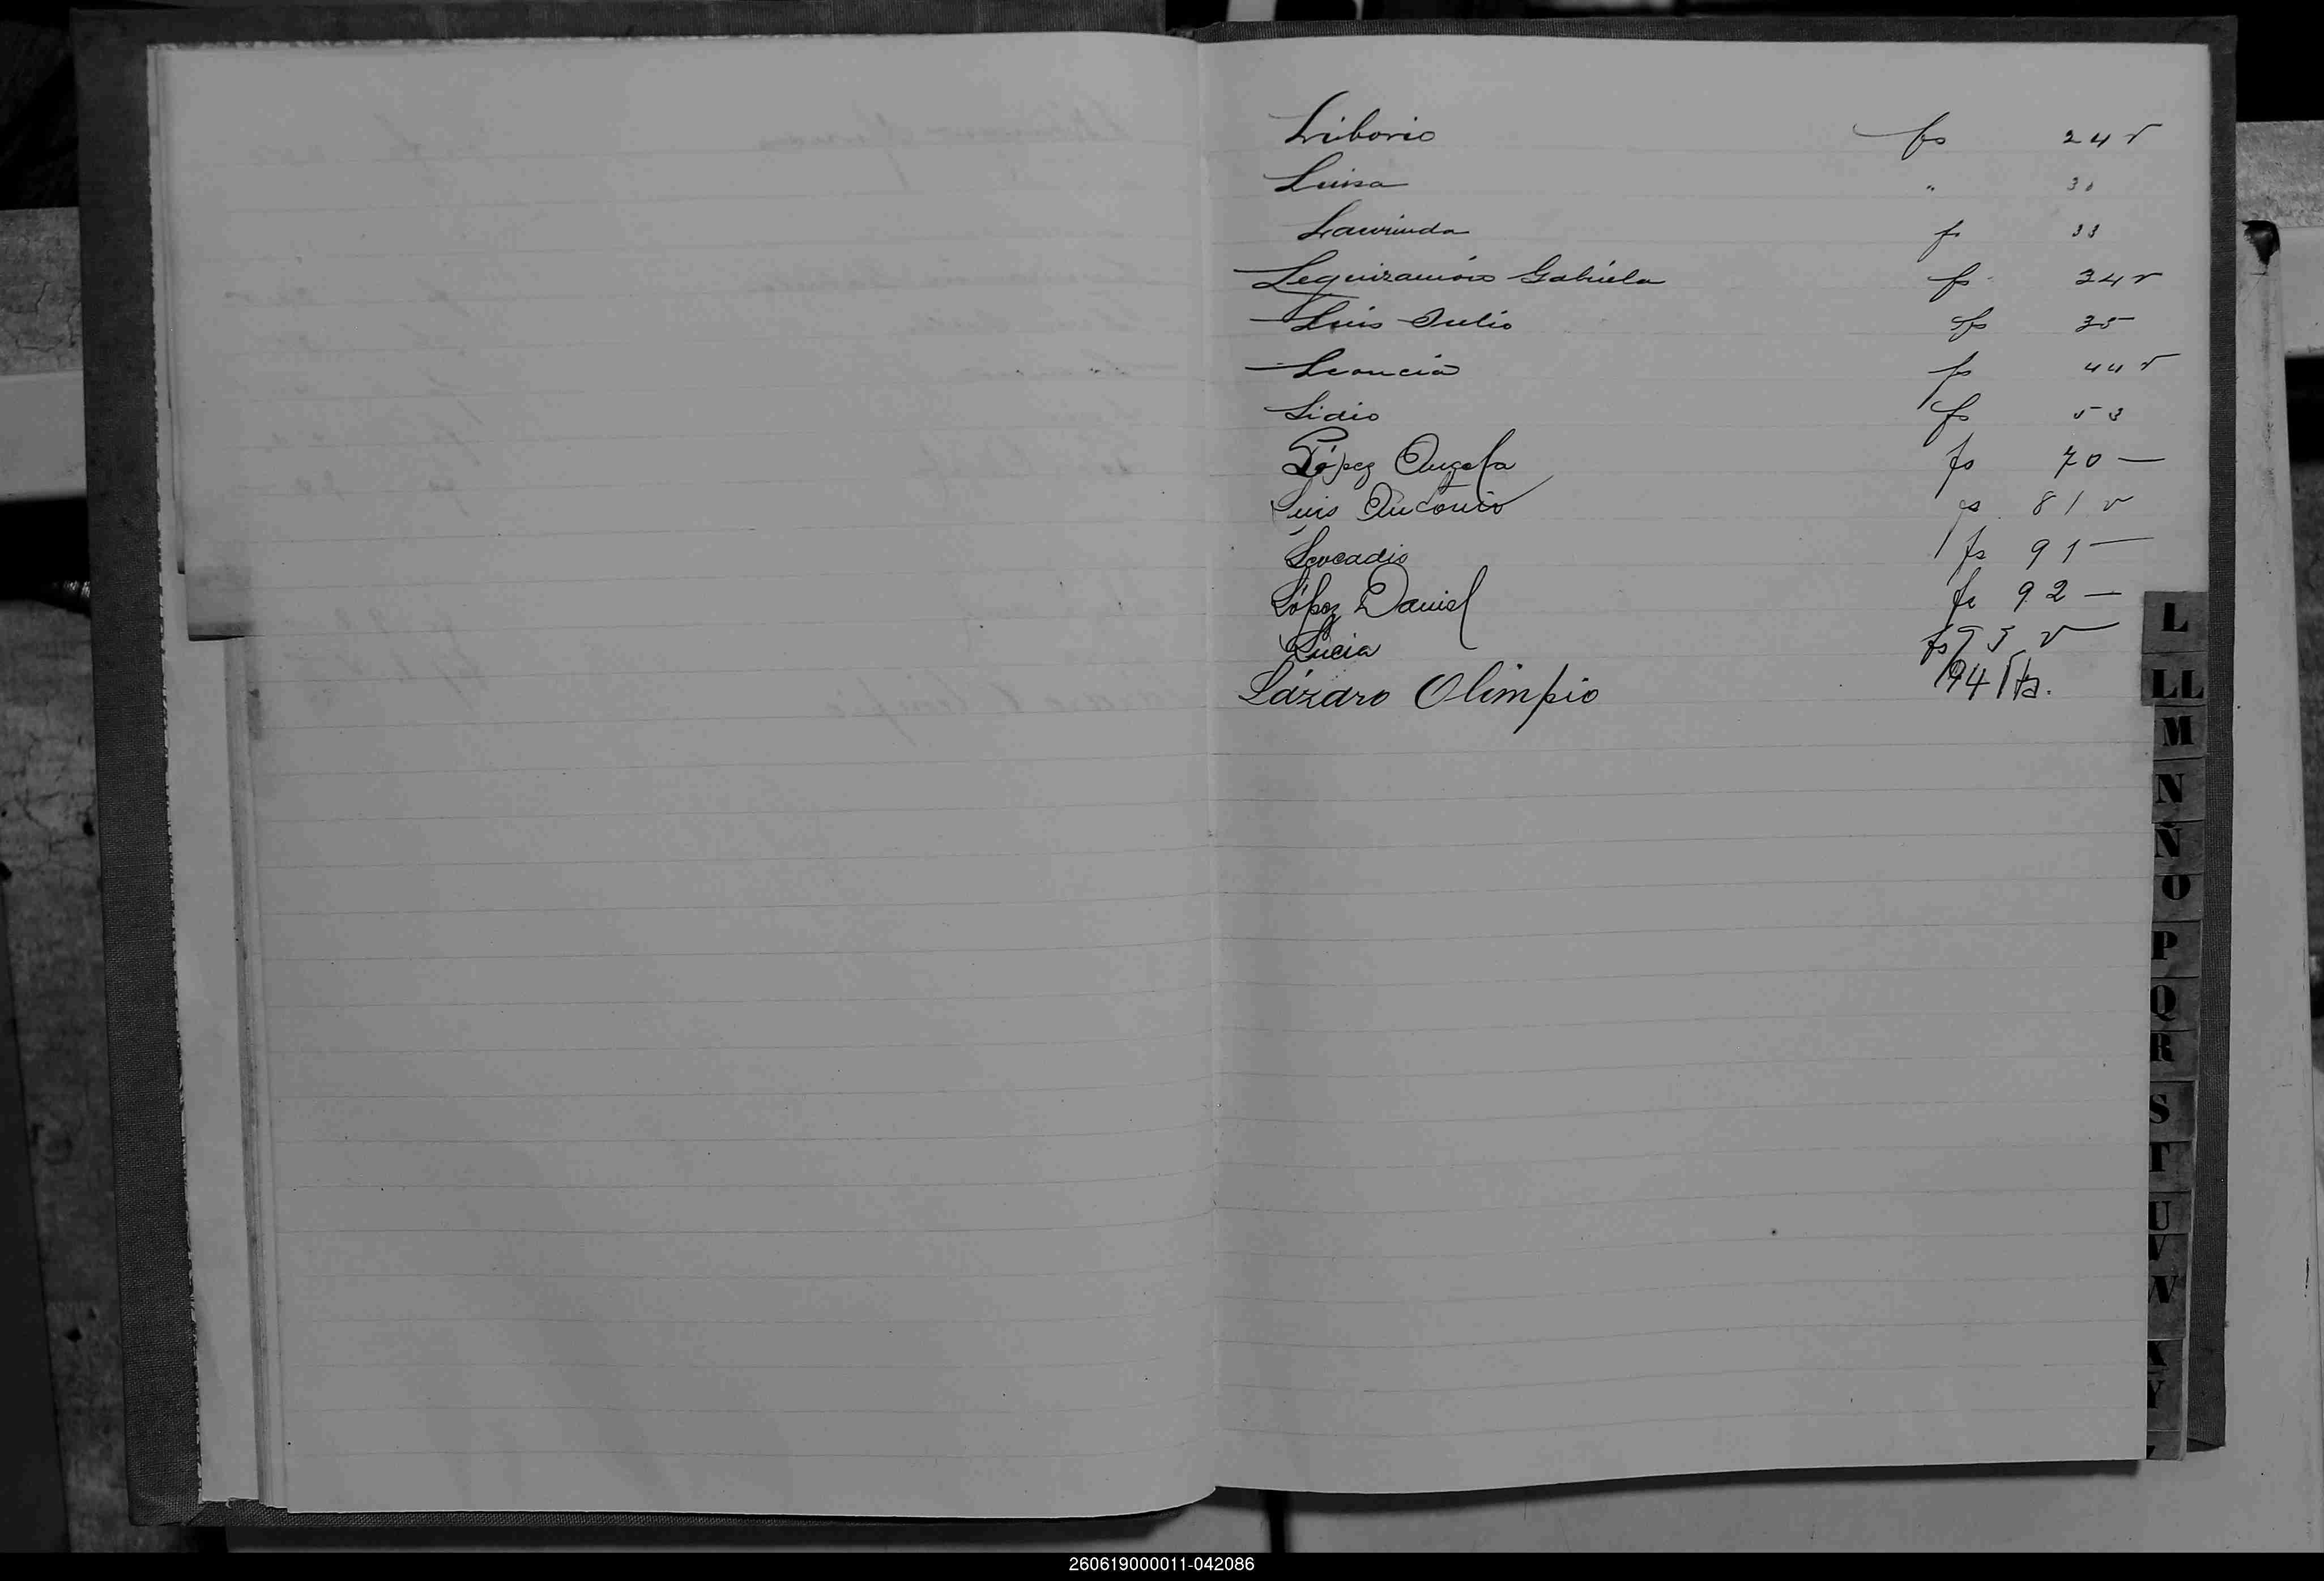 Liborio fs 24 v
Luisa " 30
Laurinda fs 33
Leguizamón Gabriela fs 34 v
Luis Julio fs 35
Leoncia fs 44 v
Lidio fs 53
López Angela fs 70 —
Luis Antonio fs 81 v
Leocadio fs 91 —
López Daniel fs 92 —
Lucia fs 93 v
Lázaro Olimpio 94
L
LL
M
N
Ñ
O
P
Q
R
S
T
U
V
W
X
Y
260619000011-042086